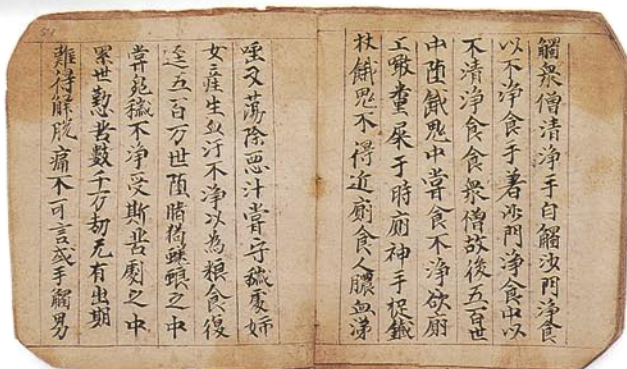 觸衆僧清淨手自觸沙門淨食
以不淨食手著沙門淨食中以
不清淨食食衆僧故後五百世
中墮餓鬼中常食不淨欲廁
上噉糞屎于時廁神手捉鐵
杖餓鬼不得近廁食人膿血涕
唾又蕩除惡汁常守穢處婦
女產生血汙不淨以為粮食復
逕五百万世墮猪狗蜣蜋之中
常穢不淨受斯苦劇之中
累世懃苦數千万劫无有出期
難得解脫痛不可言或手觸男